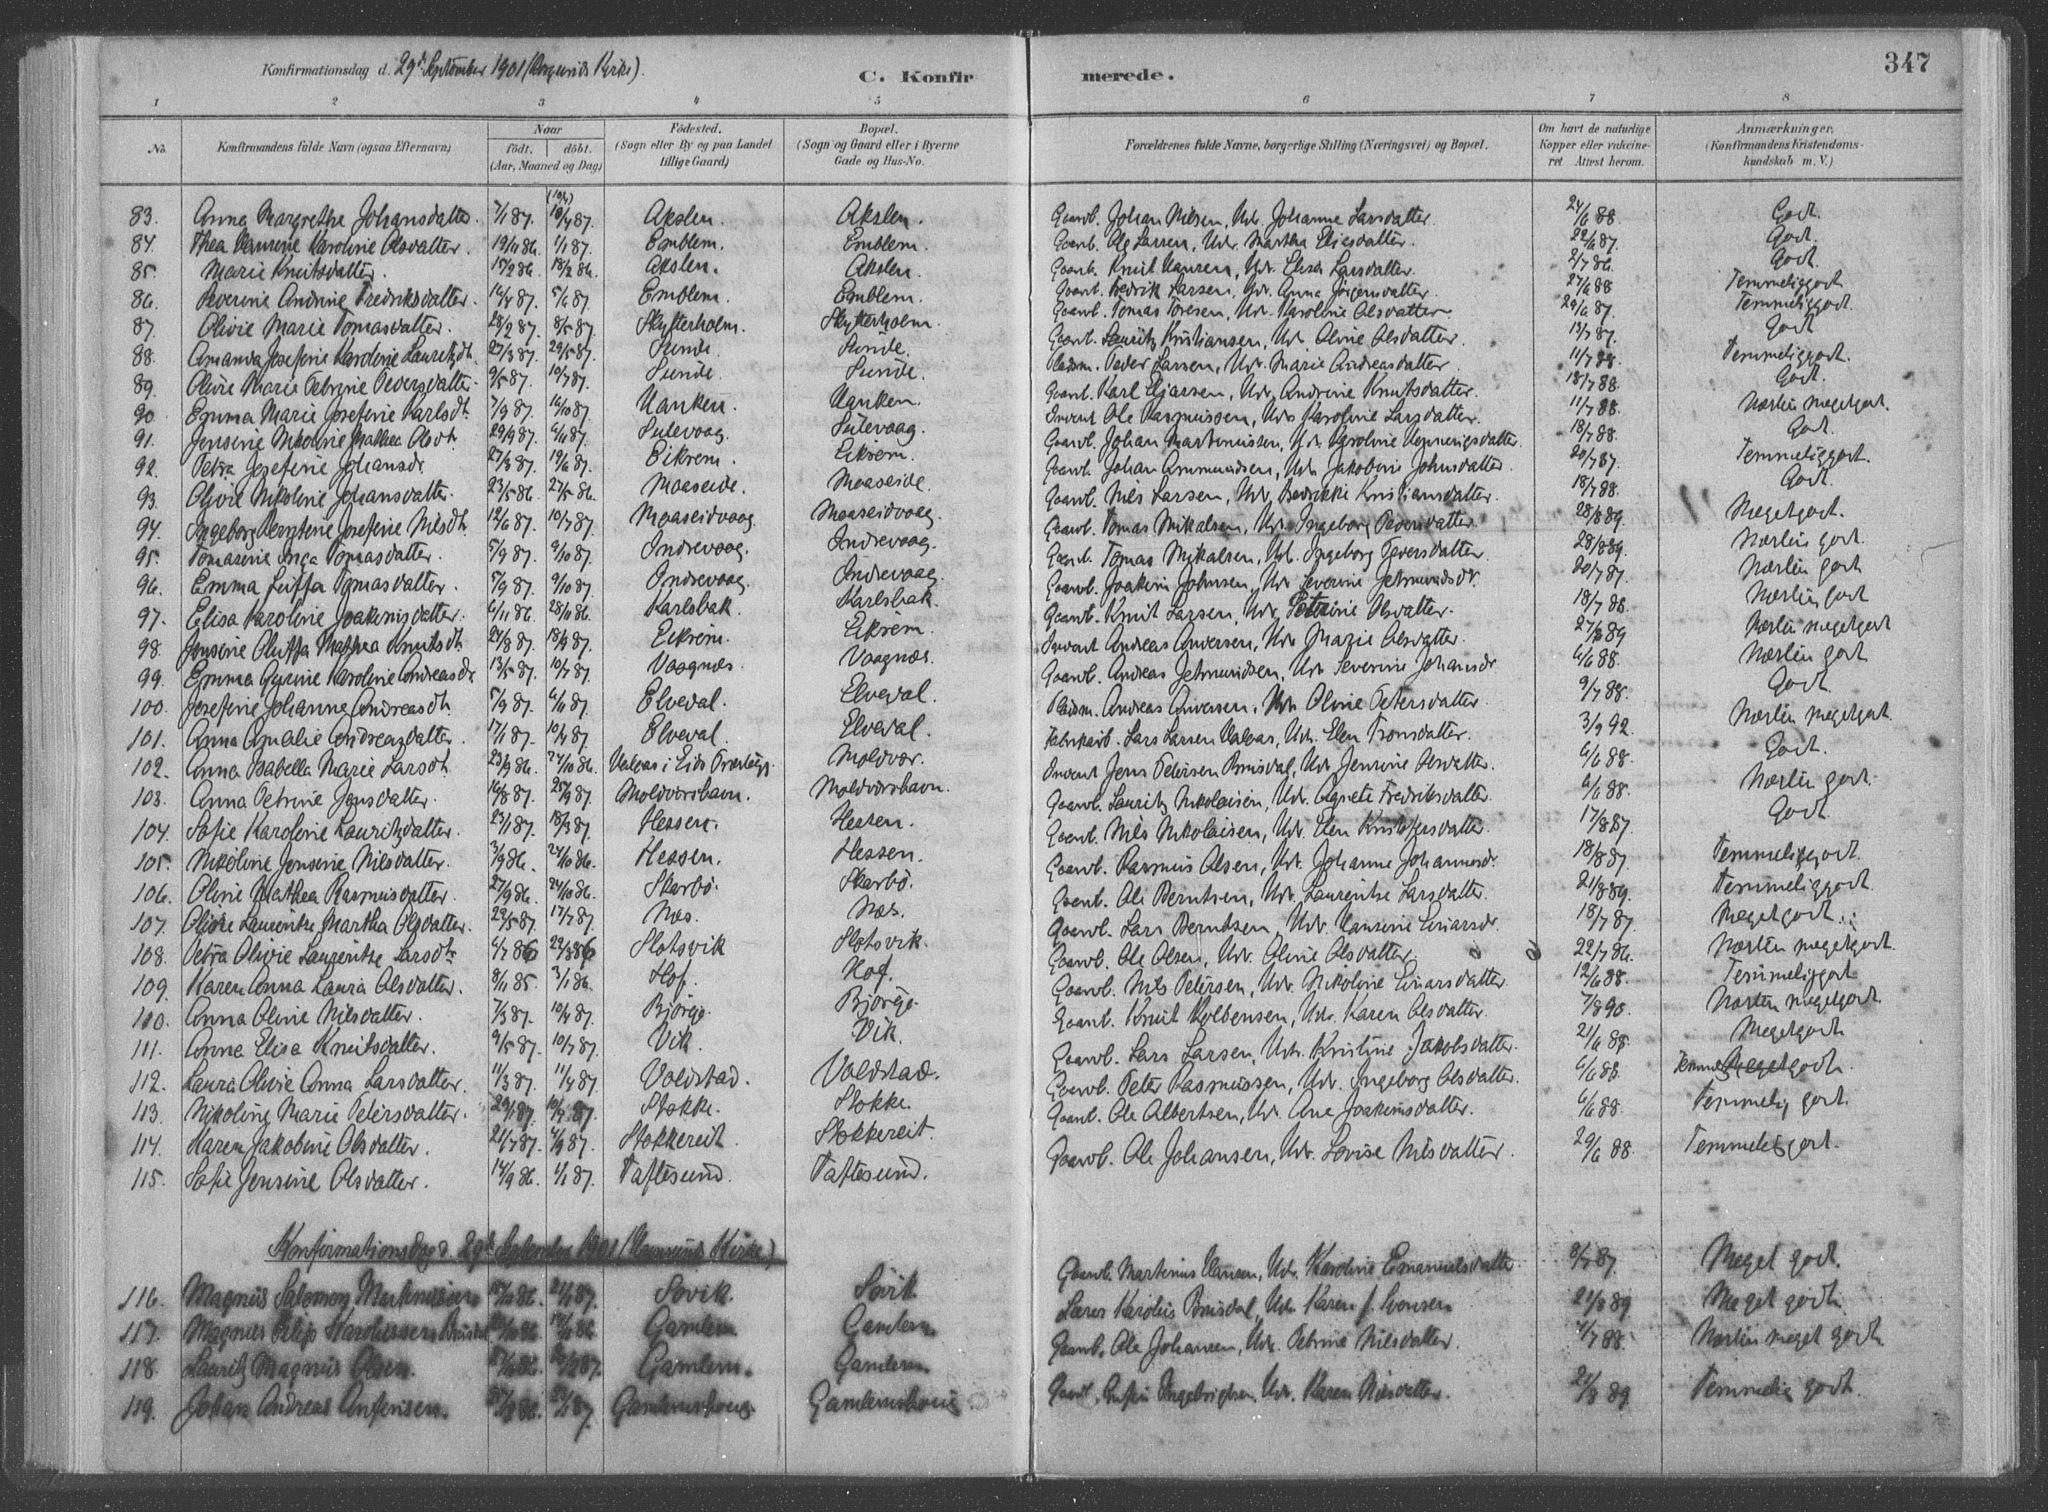 Konfirmationsdag d. 29de September 1901 (Borgunds Kirke).
C. Konfirmerede.
347
1 2 3 4 5 6 7 8
No. Konfirmandens fulde Navn (ogsaa Efternavn) Naar født. døbt. (Aar, Maaned og Dag) Fødested. (Sogn eller By og paa Landet tillige Gaard) Bopæl. (Sogn og Gaard eller i Byerne Gade og Hus-No. Forældrenes fulde Navne, borgerlige Stilling (Næringsvei) og Bopæl. Om havt de naturlige Kopper eller vakcineret Attest herom. Anmærkninger. (Konfirmandens Kristendomskundskab m. V.)
83. Anna Margrethe Johansdatter. 7/1 87. 10/4 87. Akslen. Akslen. Gaarb. Johan Nilsen, Hdr. Johanne Larsdatter. 24/6 88. Godt.
84. Thea Hansine Karoline Olsdatter. 19/11 86. 1/1 87. Emblem. Emblem. Gaarb. Ole Larsen, Hdr. Martha Eliesdatter. 22/6 87. Godt.
85. Marie Knutsdatter. 15/2 86. 18/2 86. Akslen. Akslen. Gaarb. Knut Hansen, Hdr. Elisa Larsdatter. 2/7 86. Godt.
86. Severine Andrine Fredriksdatter. 16/4 87. 5/6 87. Emblem. Emblem. Gaarb. Fredrik Larsen, Hdr. Anna Jørgensdatter. 24/6 88 Temmeliggodt
87. Olivie Marie Tomasdatter. 28/2 87. 8/5 87. Skytterholm. Skytterholm. Gaarb. Tomas Toresen, Hdr. Karoline Olsdatter. 29/6 87. Temmeliggodt.
88. Amanda Josefine Karoline Lauritzdt. 27/3 87. 29/5 87. Sunde. Sunde. Gaarb. Lauritz Kristiansen, Hdr. Oline Olsdatter. 13/7 87. Godt
89. Olivie Marie Petrine Pedersdatter. 9/5 87. 10/7 87. Sunde. Sunde. Pladsm. Peder Larsen, Hdr. Marie Andreasdatter. 11/7 88. Temmeliggodt.
90. Emma Marie Josefine Karlsdt. 7/9 87. 16/10 87. Hanken. Hanken. Gaarb. Karl Eliassen, Hdr. Andrine Knutsdatter. 18/7 88. Godt.
91. Jensine Nikoline Mathea Olsdt. 29/9 87. 6/11 87. Sulevaag. Sulevaag. Inderst Ole Rasmussen, Hdr. Karoline Larsdatter. 11/7 88. Næsten megetgodt.
92. Petra Josefine Johansdr. 27/3 87. 19/6 87. Eikrem. Eikrem. Gaarb. Johan Martinussen, Hdr. Karoline Henningsdatter. 18/7 88. Godt.
93. Olivie Nikoline Johansdatter. 23/5 86. 27/5 86. Maaseide. Maaseide. Gaarb. Johan Ammundsen, Hdr. Jakobine Johnsdatter. 20/7 87. Temmeliggodt.
94. Ingeborg Josefine Nilsdt. 12/6 87. 10/7 87. Maaseidvaag. Maaseidvaag. Gaarb. Nils Larsen, Hdr. Fredrikke Kristiansdatter. 18/7 88. Godt.
95. Tomasine Inga Tomasdatter. 5/9 87. 9/10 87. Indrevaag. Indrevaag. Gaarb. Tomas Mikalsen, Hdr. Ingeborg Pedersdatter. 28/8 89. Megetgodt.
96. Emma Luffa Tomasdatter. 5/9 87. 9/10 87. Indrevaag. Indrevaag. Gaarb. Tomas Mikalsen, Hdr. Ingeborg Pedersdatter. 28/8 89. Næsten godt.
97. Elisa Karoline Joakimsdatter. 6/11 86. 28/11 86. Karlsbak. Karlsbak. Gaarb. Joakim Johnsen, Hdr. Severine Jetmundsdr. 20/7 87. Næsten godt
98. Jensine Oluffa Mathea Knutsdt. 24/8 87. 18/9 87. Eikrem. Eikrem. Gaarb. Knut Larsen, Hdr. Petrine Olsdatter. 18/7 88. Næsten godt
99. Emma Gurine Karoline Andreasdr. 13/5 87. 10/7 87. Vaagnæs. Vaagnæs. Inderst Andreas Andersen, Hdr. Marie Olsdatter. 27/8 89 Næsten megetgodt
100. Josefine Johanne Andreasdt. 5/9 87. 6/11 87. Elveval. Elveval. Gaarb. Andreas Jetmundsen, Hdr. Severine Johansdr. 6/6 88. Næsten godt
101. Anna Amalie Andreasdatter. 17/1 87. 10/4 87. Elveval. Elveval. Pladsm. Andreas Andersen, Hdr. Oline Petersdatter. 9/7 88. Godt.
102. Anna Isabella Marie Larsdt. 23/9 86. 24/10 86. Moldvær. Fabrikarb. Lars Larsen, Hdr. Elen Tronsdatter. 3/9 92. Næsten megetgodt.
103. Anna Petrine Jensdatter. 16/8 87. 25/9 87. Moldværshavn. Moldværshavn. Inderst Jens Petersen Brusdal, Hdr. Jensine Olsdatter. 6/6 88. Godt.
104. Sofie Karoline Lauritzdatter. 23/1 87. 18/3 87. Hessen. Hessen. Gaarb. Lauritz Nikolaisen, Hdr. Agnete Fredriksdatter. 6/6 88. Næsten godt.
105. Nikoline Jensine Nilsdatter. 3/9 86. 24/10 86. Hessen. Hessen. Gaarb. Nils Nikolaisen, Hdr. Elen Kristofersdatter. 17/8 87 Godt.
106. Oline Mathea Rasmusdatter. 27/9 86. 24/10 86. Skarbø. Skarbø. Gaarb. Rasmus Olsen, Hdr. Johanne Johannesdr. 18/8 87. Temmeliggodt.
107. Olivie Laurentse Martha Olsdatter. 29/5 87. 17/7 87. Næs. Næs. Gaarb. Ole Berntsen, Hdr. Laurentse Larsdatter. 21/8 89. Temmeliggodt.
108. Petra Olivie Laurentse Larsdt. 6/7 86 22/8 86 Slotsvik Slotsvik. Gaarb. Lars Berntsen, Hdr. Hansine Einarsdr. 18/7 87. Megetgodt.
109. Karen Anna Laura Olsdatter. 8/11 85. 3/1 86. Hof. Hof. Gaarb. Ole Olsen, Hdr. Oline Olsdatter. 22/7 86. Næsten megetgodt.
110. Anna Oline Nilsdatter. 7/3 87. 10/4 87. Bjørge. Bjørge. Gaarb. Nils Petersen, Hdr. Nikoline Einarsdatter. 12/6 88. Temmeliggodt
111. Anna Elisa Knutsdatter. 9/5 87. 10/7 87. Vik. Vik. Gaarb. Knut Kolbensen, Hdr. Karen Olsdatter. 7/8 90. Næsten megetgodt.
112. Laura Olivie Anna Larsdatter. 11/3 87. 11/4 87. Voldstad. Voldstad. Gaarb. Lars Larsen, Hdr. Kristine Jakobsdatter. 21/6 88. Megetgodt
113. Nikoline Marie Petersdatter. 29/1 87. 10/4 87. Stokke. Stokke. Gaarb. Peter Rasmussen, Hdr. Ingeborg Olsdatter. 6/6 88. Temmeliggodt.
114. Karen Jakobine Olsdatter. 21/7 87. 4/9 87. Stokkereit. Stokkereit. Gaarb. Ole Albertsen, Hdr. Ane Joakimsdatter. 6/6 88. Temmelig godt.
115. Sofie Jensine Olsdatter. 14/9 86. 1/1 87. Taftesund. Taftesund. Gaarb. Ole Johansen, Hdr. Lovise Nilsdatter. 29/6 88. Temmelig godt.
Konfirmationsdag d. 29de September 1901 (Hamsunds Kirke)
116. Magnus Salomon Martinussen 86. 87. Søvik. Søvik Gaarb. Martinus Hansen, Hdr. Karoline Emanuelsdatter 8/7 87. Meget godt.
117. Magnus Filip Karolussen Brusdal 86. 86. Gamlem Gamlem Lærer Karolus Brusdal, Hdr. Karen f. Svensen 21/8 89 Meget godt.
118. Lauritz Magnus Olsen. 86. 87. Gamlem. Gamlem Gaarb. Ole Johansen, Hdr. Petrine Nilsdatter. 4/7 88. Næsten meget godt
119. Johan Andreas 86. 87. Gaarb. Ingebrigtsen, Hdr. Karen Nilsdatter. 21/8 89. Temmelig godt.